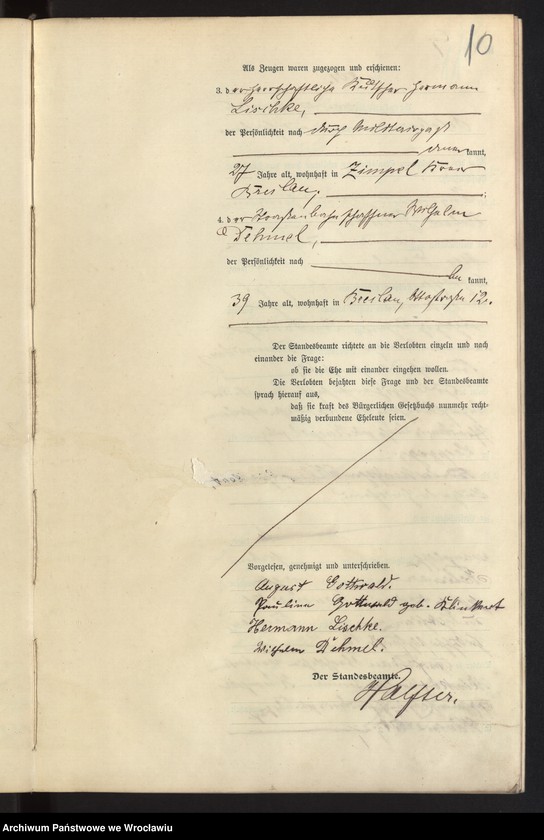 10
Als Zeugen waren zugezogen und erschienen:
3. der herrschaftliche Kutscher Hermann
Lischke,
der Persönlichkeit nach durch Militärpaß
anerkannt,
27 Jahre alt, wohnhaft in Zimpel Kreis
Breslau;
4. der Straßenbahnschaffner Wilhelm
Dehmel,
der Persönlichkeit nach
bekannt,
39 Jahre alt, wohnhaft in Breslau, 12.
Der Standesbeamte richtete an die Verlobten einzeln und nach
einander die Frage:
ob sie die Ehe mit einander eingehen wollen.
Die Verlobten bejahten diese Frage und der Standesbeamte
sprach hierauf aus,
daß sie kraft des Bürgerlichen Gesetzbuchs nunmehr recht-
mäßig verbundene Eheleute seien.
Vorgelesen, genehmigt und unterschrieben.
August Gottwald.
Pauline Gottwald geb. Klinkert
Hermann Lischke.
Wilhelm Dehmel.
Der Standesbeamte.
Archiwum Państwowe we Wrocławiu